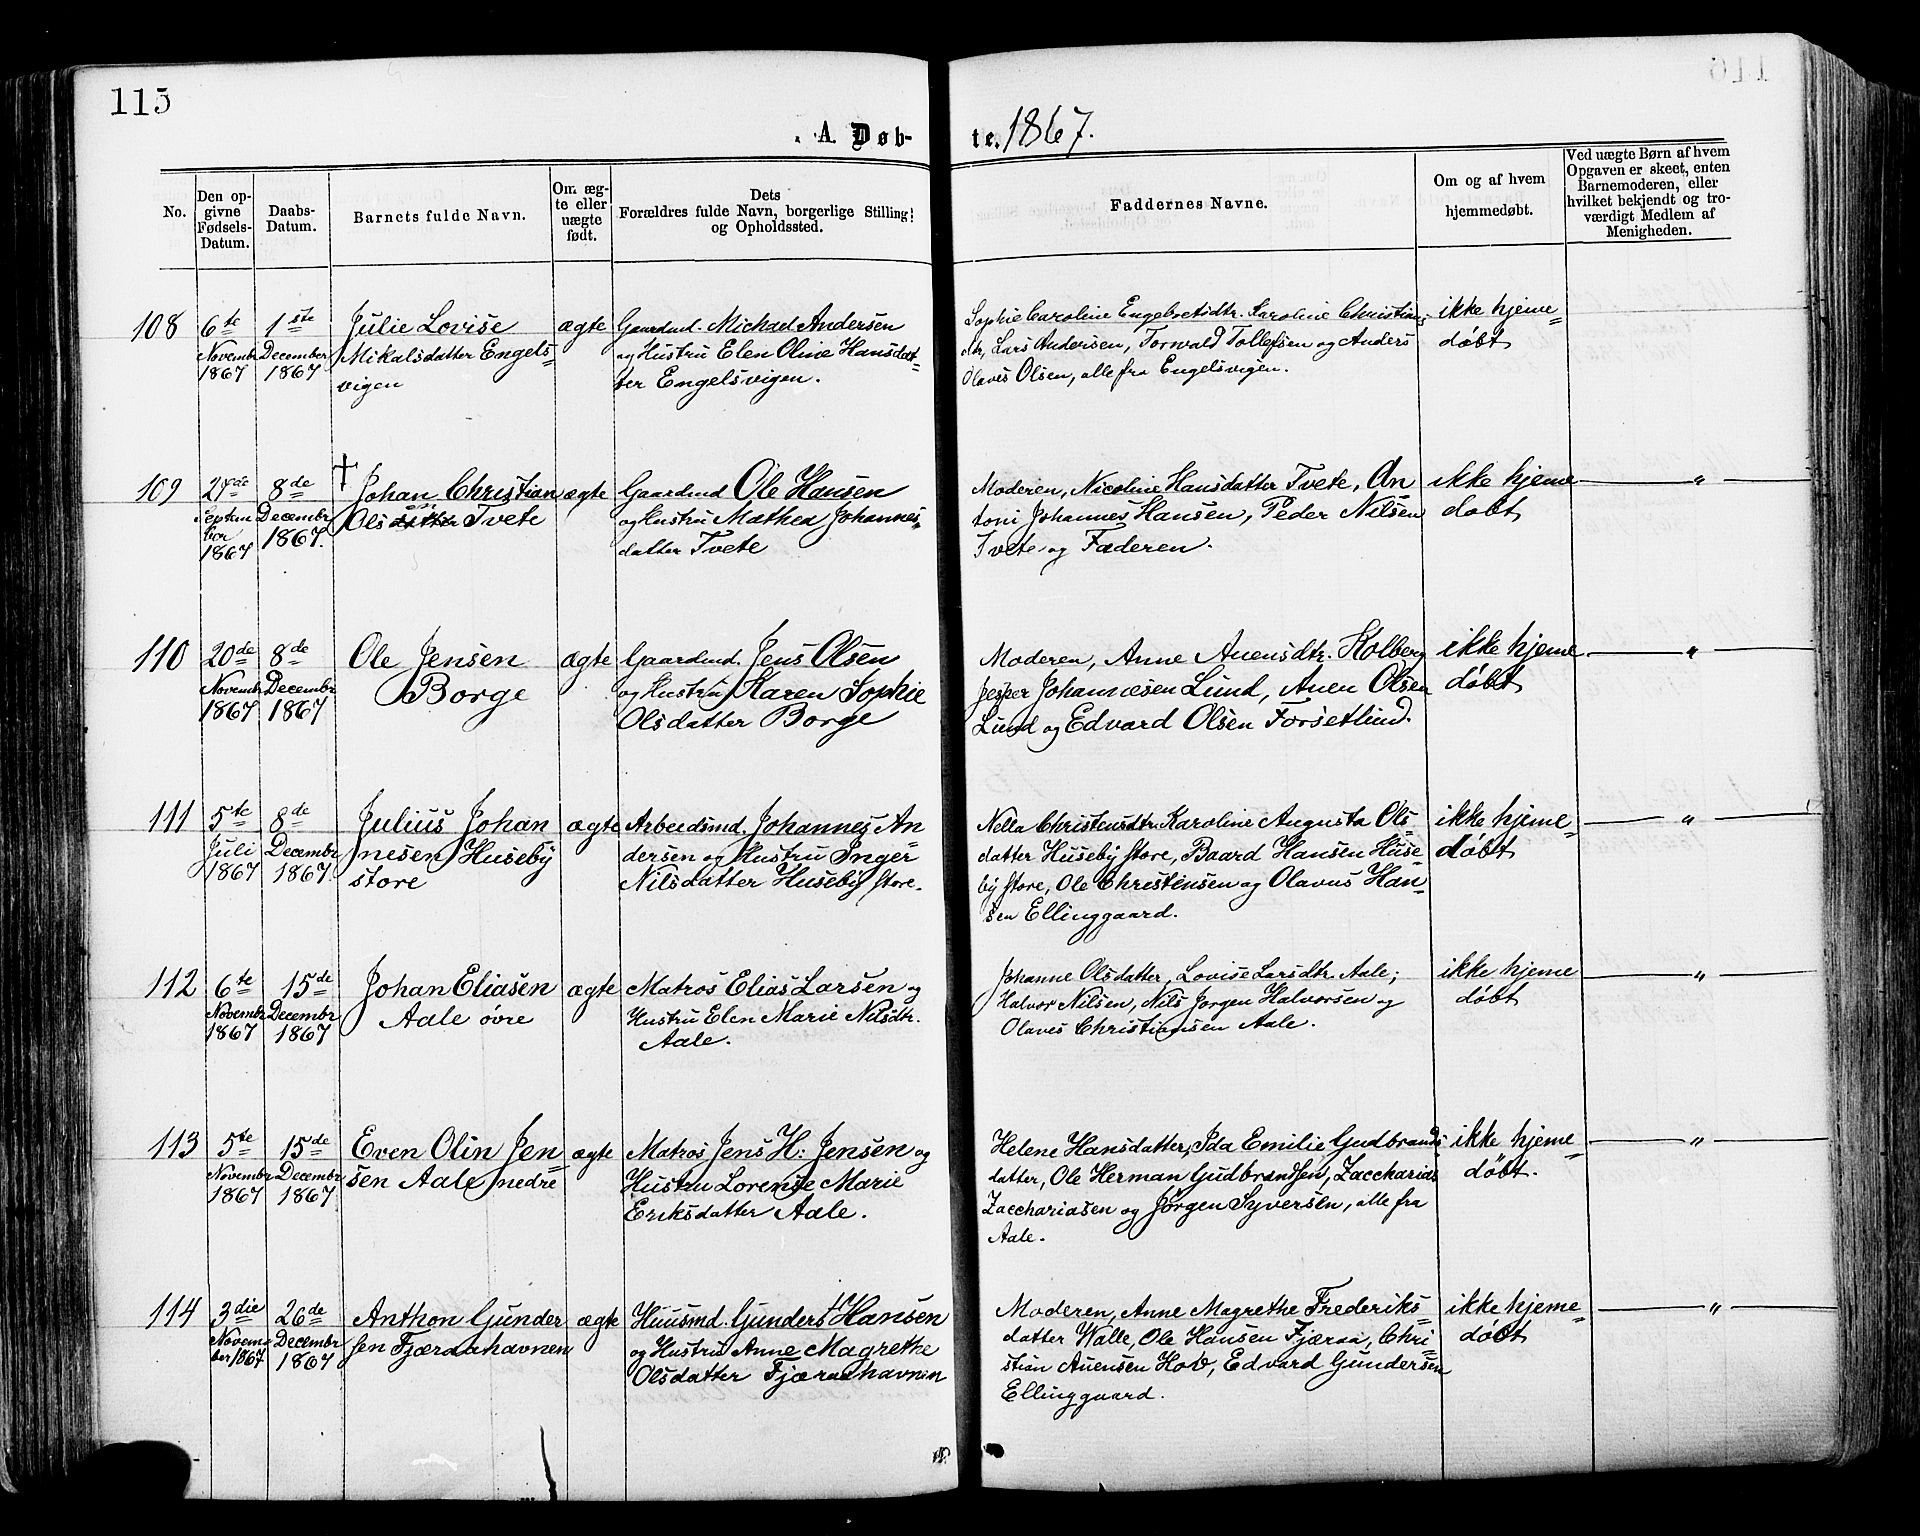 115
A. Døb-
te. 1867.
No.
Den op-
givne
Fødsels-
Datum.
Daabs-
Datum.
Barnets fulde Navn.
Om æg-
te eller
uægte
født.
Dets
Forældres fulde Navn, borgerlige Stilling
og Opholdssted.
Faddernes Navne.
Om og af hvem
hjemmedøbt.
Ved uægte Børn af hvem
Opgaven er skeet, enten
Barnemoderen, eller
hvilket bekjendt og tro-
værdigt Medlem af
Menigheden.
108
6te
Novembr
1867
1ste
December
1867
Julie Lovise
Mikalsdatter Engels-
vigen
ægte
Gaardmd. Michael Andersen
og Hustru Elen Oline Hansdat-
ter Engelsvigen.
Sophie Caroline Engebretsdtr. Karoline Christians
dtr, Lars Andersen, Torwald Tollefsen og Anders
Olaves Olsen, alle fra Engelsvigen.
ikke hjeme-
døbt
109
Septem
ber
1867
8de
Decembr
1867.
† Johan Christian
Tvete
ægte
Gaardmd Ole Hansen
og Hustru Mathea Johannes-
datter Tvete
Moderen, Nicoline Hansdatter Tvete, An
toni Johannes Hansen, Peder Nilsen
Tvete og Faderen.
ikke hjeme
døbt
"
110
20de
Novembr
1867
8de
Decembr
1867
Ole Jensen
Borge
ægte
Gaardmd. Jens Olsen
og Hustru Karen Sophie
Olsdatter Borge
Moderen, Anne Auensdtr. Kolberg
Jesper Johannesen Lund, Auen Olsen
Lund og Edvard Olsen Forsetlund.
ikke hjeme
døbt
"
111
5te
Juli
1867
8de
Decembr
1867.
Julius Johan
nesen Huseby
store
ægte
Arbeidsmd. Johannes An
dersen og Hustru Inger
Nilsdatter Huseby store.
Nella Christensdtr. Karoline Augusta Ols-
datter Huseby store, Baard Hansen Huse-
by store, Ole Christensen og Olavus Han-
sen Ellinggaard.
ikke hjeme-
døbt
"
112
6te
Novembr
1867
15de
Decembr
1867
Johan Eliasen
Aale øvre
ægte
Matros Elias Larsen og
Hustru Elen Marie Nilsdtr.
Aale.
Johanne Olsdatter, Lovise Larsdtr. Aale;
Halvor Nilsen, Nils Jørgen Halvorsen og
Olaves Christiansen Aale.
ikke hjeme
døbt
"
113
5te
Novembr
1867
15de
Decembr
1867
Even Olin Jen-
sen Aale nedre
ægte
Matros Jens H: Jensen og
Hustru Lorense Marie
Eriksdatter Aale.
Helene Hansdatter, Ida Emilie Gudbrands
datter, Ole Herman Gudbrandsen, Zaccharias
Zacchariasen og Jørgen Syversen, alle fra
Aale.
ikke hjeme-
døbt.
"
114
3die
Novem
ber 1867
26de
Decembr
1867
Anthon Gunder
sen Fjæraahavnen
ægte
Huusmd. Gundert Hansen
og Hustru Anne Magrethe
Olsdatter Fjæraahavnen
Moderen, Anne Magrethe Frederiks-
datter Walle, Ole Hansen Fjæraa, Chri-
stian Auensen Hov, Edvard Gundersen
Ellinggaard.
ikke hjeme-
døbt
"